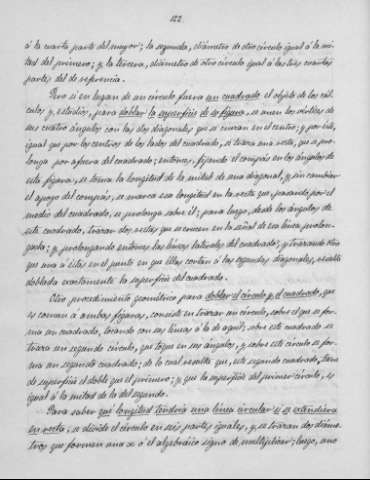 122.
á la cuarta parte del mayor; la segunda, diámetro de otro círculo igual á la mi-
tad del primero; y la tercera, diámetro de otro círculo igual á las tres cuartas
partes del de referencia.
Pero si en lugar de un círculo fuera un cuadrado el objeto de los cál-
culos y estudios, para doblar la superficie de su figura, se unen los vértices de
sus cuatro ángulos con las dos diagonales que se cruzan en el centro; y por éste,
igual que por los centros de los lados del cuadrado, se traza una recta, que se pro-
longa por afuera del cuadrado; entonces, fijando el compás en los ángulos de
esta figura, se toma la longitud de la mitad de una diagonal, y sin cambiar
el apoyo del compás, se marca esa longitud en la recta que, pasando por el
medio del cuadrado, se prolonga sobre él; para luego, desde los ángulos de
este cuadrado, trazar dos rectas que se crucen en la señal de esa línea prolon-
gada; y prolongando entonces las líneas laterales del cuadrado, y trazando otra
que una á éstas en el punto en que ellas cortan á las segundas diagonales, resulta
doblada exactamente la superficie del cuadrado.
Otro procedimiento geométrico para doblar el círculo y el cuadrado, que
es común á ambas figuras, consiste en trazar un círculo, sobre el que se for-
ma un cuadrado, tocando con sus líneas á la de aquél; sobre este cuadrado se
traza un segundo círculo, que toque en sus ángulos, y sobre este círculo se for-
ma un segundo cuadrado; de lo cual resulta que, este segundo cuadrado, tiene
de superficie el doble que el primero; y que la superficie del primer círculo, es
igual á la mitad de la del segundo.
Para saber qué longitud tendría una línea circular si se extendiera
en recta, se divide el círculo en seis partes iguales, y se trazan dos diáme-
tros que formen una x ó el algebráico signo de multiplicar; luego, uno